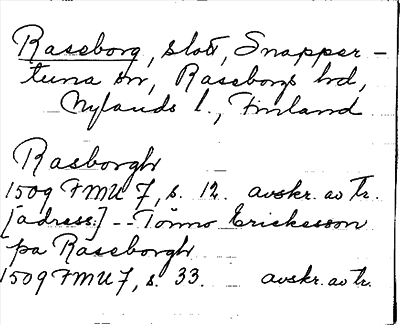 Raseborg, slott, Snapper-
tuna sn, Raseborgs hd,
Nylands l., Finland
Rasborgh
1509 FMU 7, s. 12. avskr. av Tr.
[adress:] -- Tönno Erickesson
pa Raseborgh
1509 FMU 7, s. 33. avskr. av Tr.